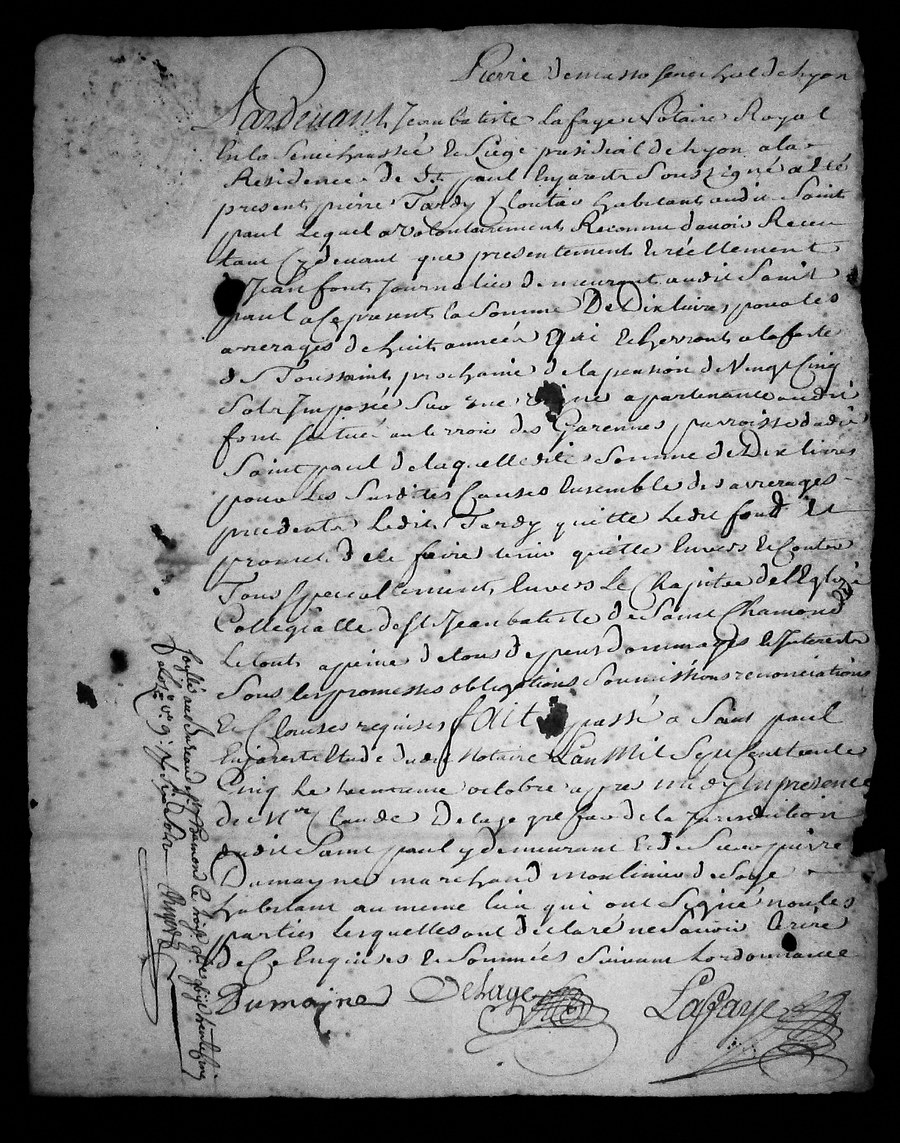 Pierre demasso senechal de Lyon
Pardevant Jean batiste Lafaye Notaire Royal
En la Senechaussée & Siege presidial de Lyon a la
Residence de St paul Enjarest Soussigné a Eté
present pierre Tardy habitant audit Saint
paul Lequel a volontairement Reconnu davoir Receu
tant Cydevant que presentement & réellement
Jean font Journalier demeurant audit Saint
paul a Ce present la Somme De Dix livres pour les
arrerages de huit années Echerront a la feste
de Toussaint prochaine de la pension de Vingt Cinq
Sols Imposée Sur une vigne appartenante audit
font Scituée au terroir des Garennes parroisse dudit
Saint paul de laquelle ditte Somme de Dix livres
pour Les Susdites Causes Ensemble des arrerages
precedents Ledit Tardy quitte Ledit font Et
promet de le faire tenir quitte Envers & Contre
Tous specialement Envers Le Chapitre de l'Eglize
Collegialle de St Jean batiste de Saint Chamond
Le tout a peine de tous depens dommages & Interests
Sous les promesses obligations Soumissions renonciations
& Clauses requises fait & passé a Saint paul
Enjarest Etude dudit Notaire L'an Mil Sept Cent trente
Cinq Le trentieme octobre apres midy En presence
de Mre Claude Delaye greffier de la Jurisdiction
dudit Saint paul y demeurant & de Sieur pierre
Dumayne marchand moulinier de Soye
habitant au meme lieu qui ont Signé non les
parties Lesquelles ont declaré ne Scavoir Ecrire
de Ce Enquises & Sommées Suivant Lordonnance
Dumaine Delaye Lafaye
au Bureau de St Chamond le